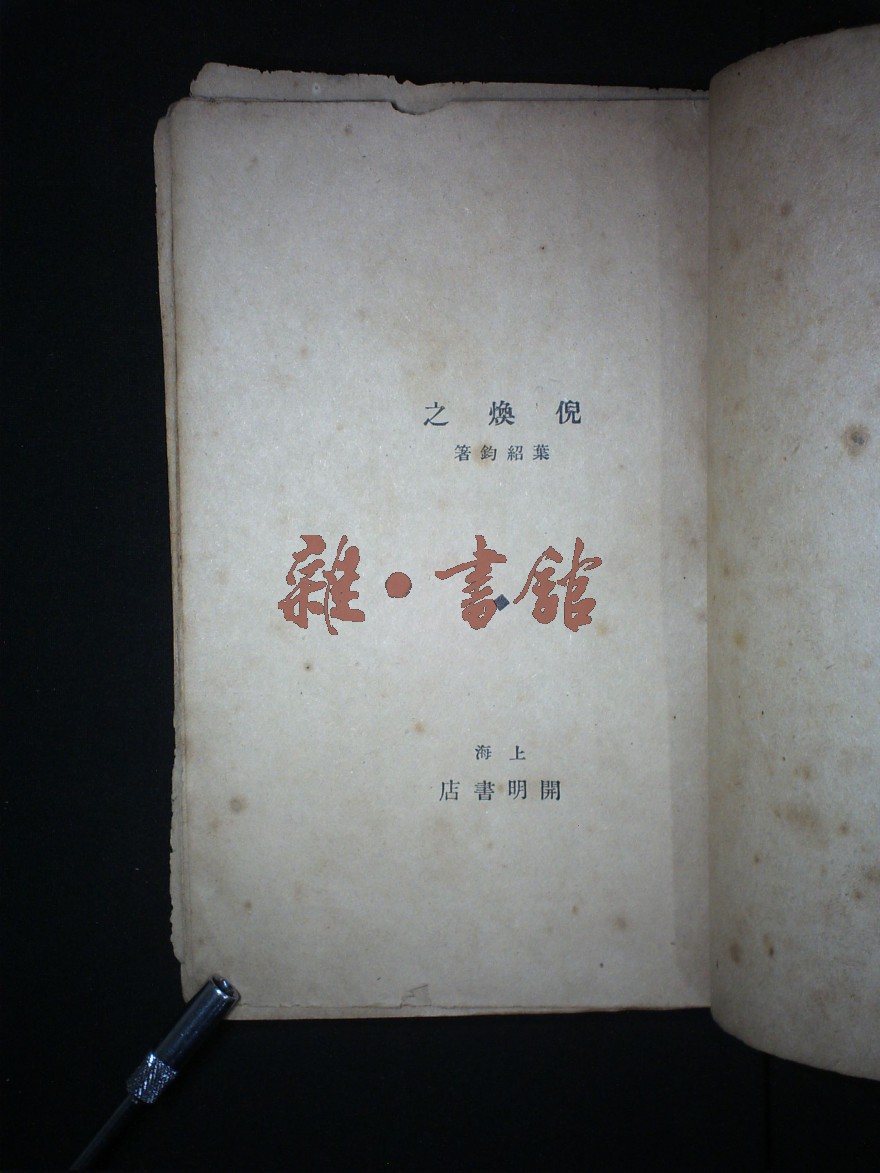 倪煥之
葉紹鈞著
雜·書館
上海
開明書店